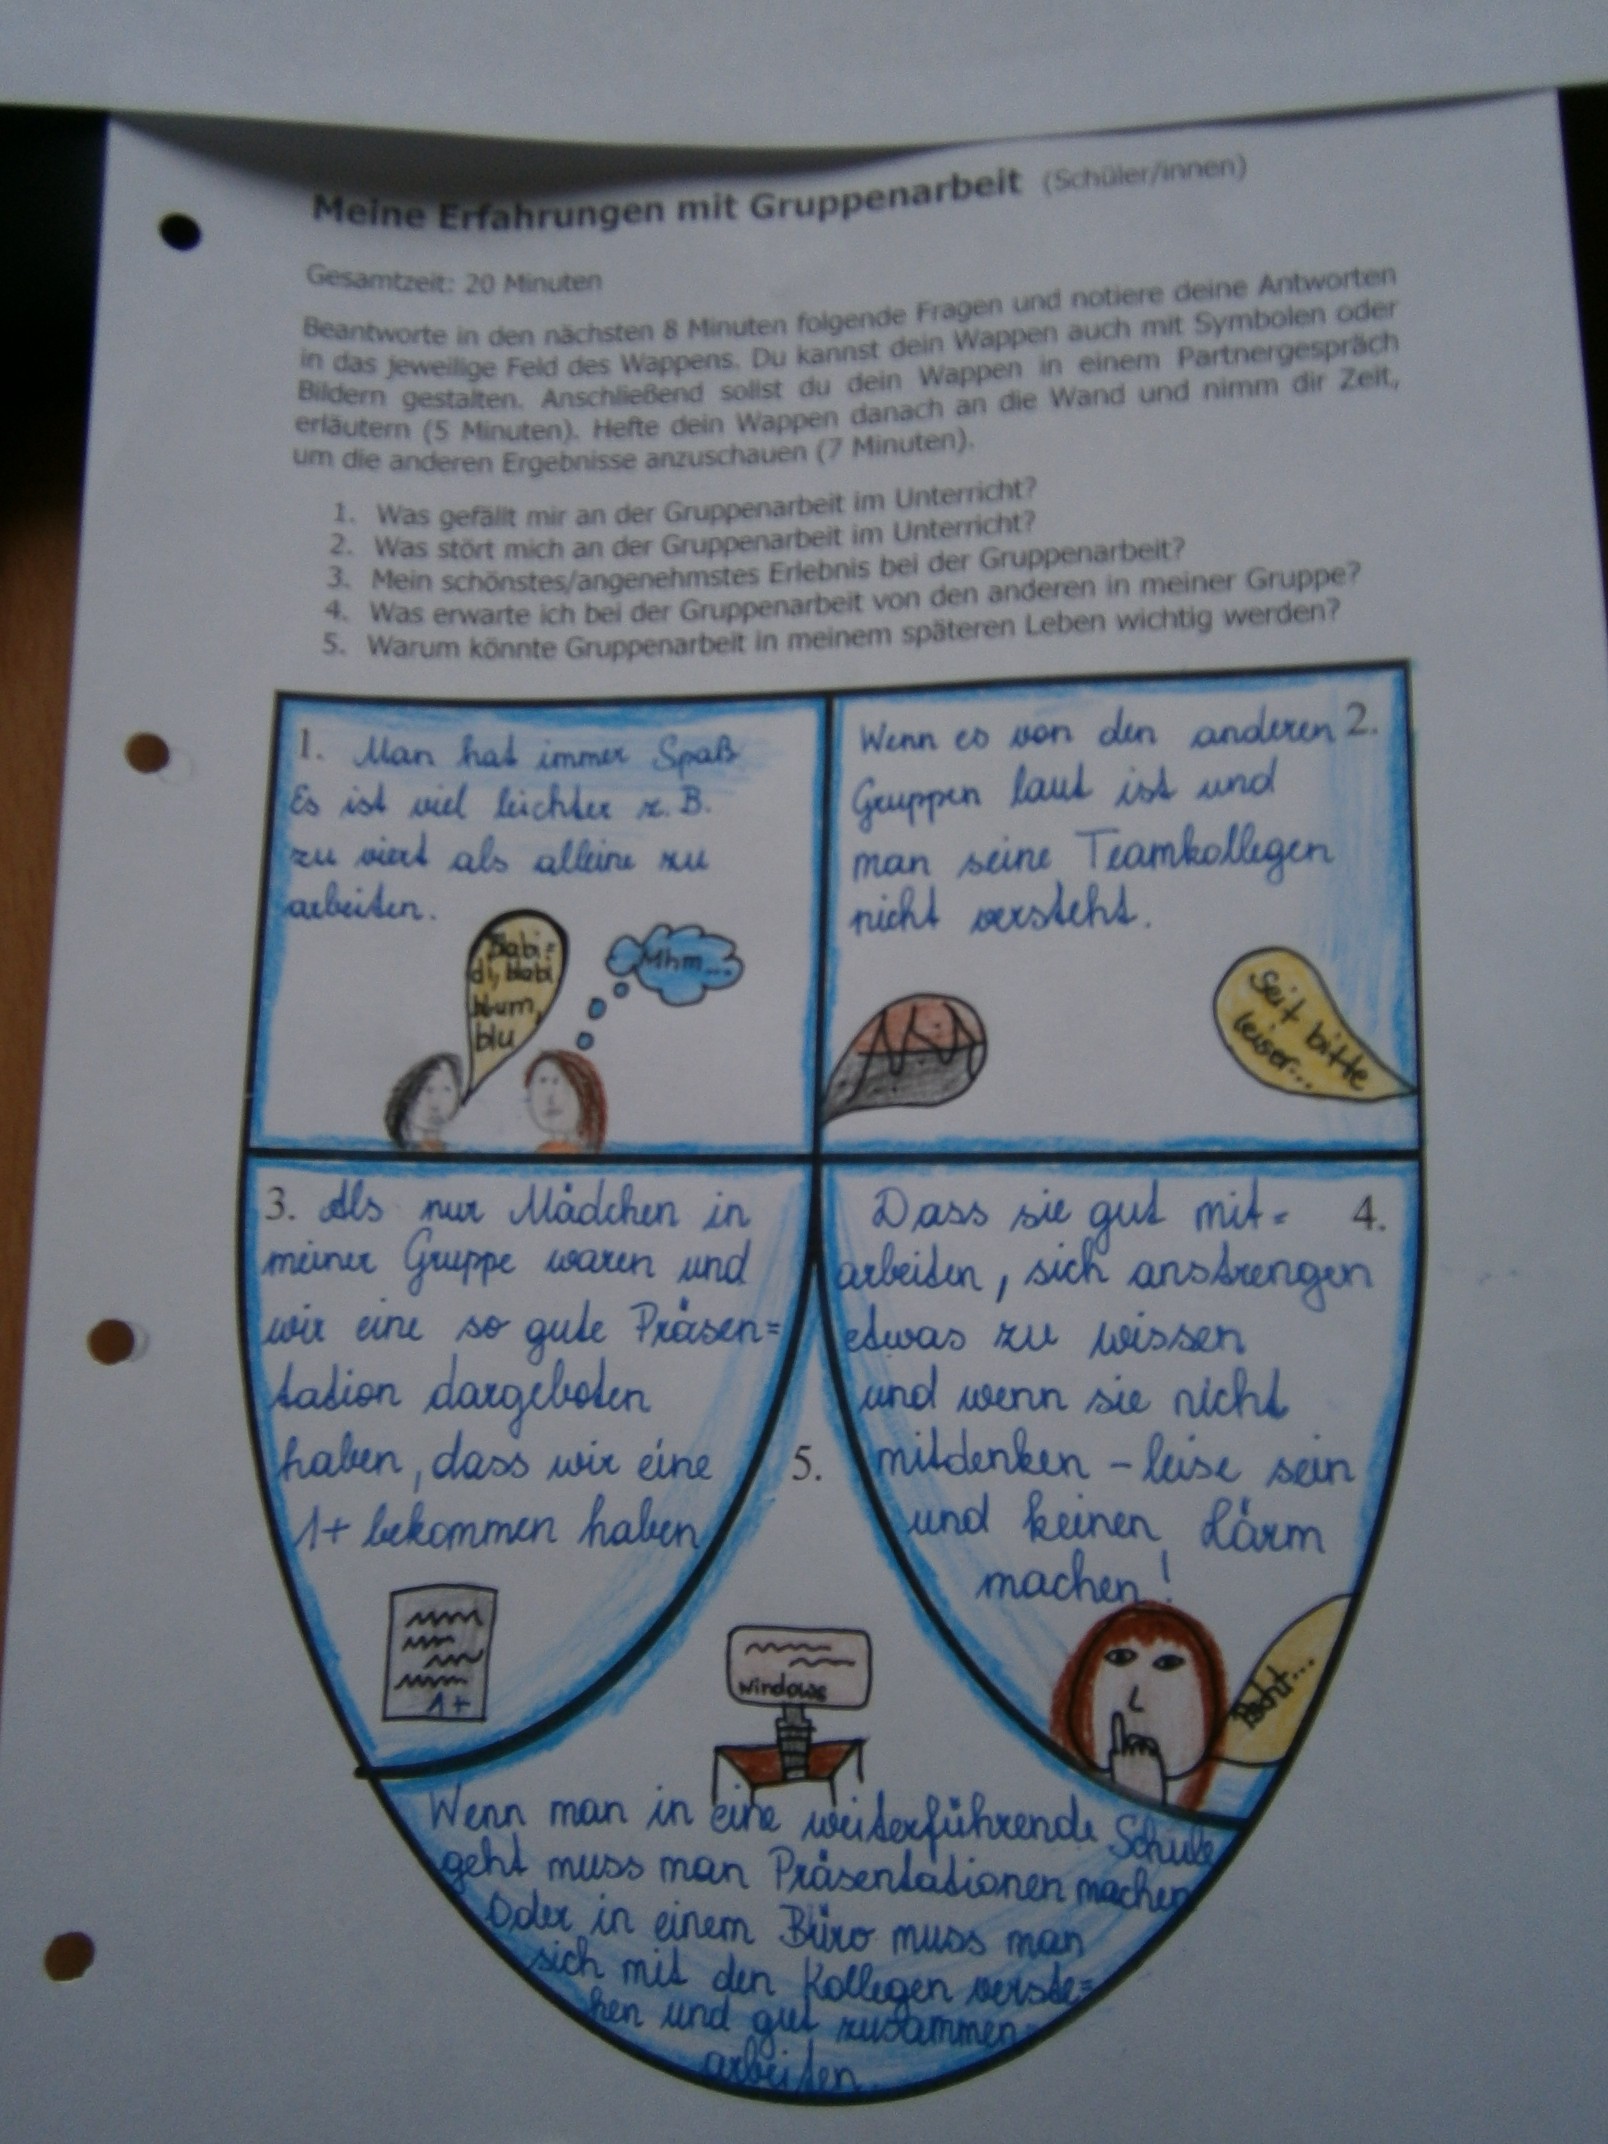 Meine Erfahrungen mit Gruppenarbeit (Schüler/innen)
Gesamtzeit: 20 Minuten
Beantworte in den nächsten 8 Minuten folgende Fragen und notiere deine Antworten
in das jeweilige Feld des Wappens. Du kannst dein Wappen auch mit Symbolen oder
Bildern gestalten. Anschließend sollst du dein Wappen in einem Partnergespräch
erläutern (5 Minuten). Hefte dein Wappen danach an die Wand und nimm dir Zeit,
um die anderen Ergebnisse anzuschauen (7 Minuten).
1. Was gefällt mir an der Gruppenarbeit im Unterricht?
2. Was stört mich an der Gruppenarbeit im Unterricht?
3. Mein schönstes/angenehmstes Erlebnis bei der Gruppenarbeit?
4. Was erwarte ich bei der Gruppenarbeit von den anderen in meiner Gruppe?
5. Warum könnte Gruppenarbeit in meinem späteren Leben wichtig werden?
1. Man hat immer Spaß
Es ist viel leichter z. B.
zu viert als alleine zu
arbeiten.
di, blabi
blum,
blu
Mhm...
Wenn es von den anderen 2.
Gruppen laut ist und
man seine Teamkollegen
nicht versteht.
Seit bitte
leiser...
3. Als nur Mädchen in
meiner Gruppe waren und
wir eine so gute Präsen=
tation dargeboten
haben, dass wir eine
1+ bekommen haben
1+
Dass sie gut mit= 4.
arbeiten, sich anstrengen
etwas zu wissen
und wenn sie nicht
mitdenken – leise sein
und keinen Lärm
machen!
5.
Windows
Wenn man in eine weiterführende Schule
geht muss man Präsentationen machen
Oder in einem Büro muss man
sich mit den Kollegen verste=
hen und gut zusammen=
arbeiten.